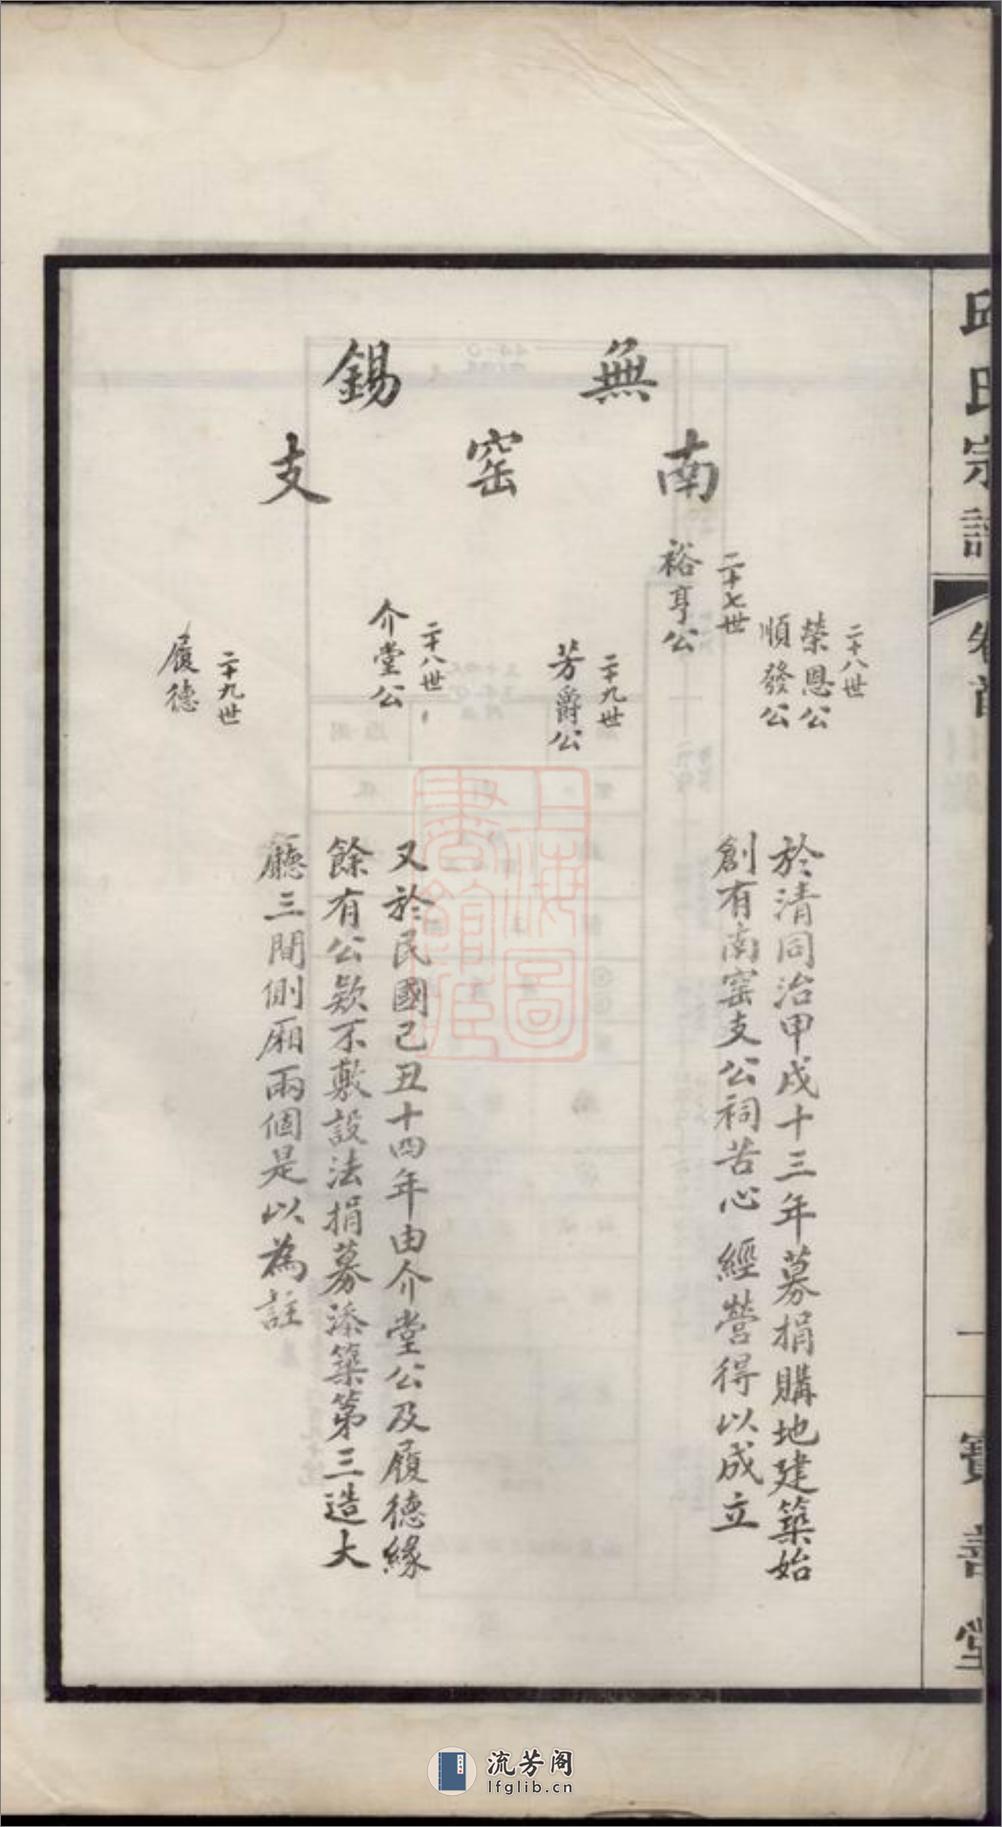 邱氏宗譜
卷首
一
寶善堂
無錫
南窑支
二十八世
榮恩公
順發公
二十七世
裕亨公
二十九世
芳爵公
二十八世
介堂公
二十九世
履德
於清同治甲戌十三年募捐購地建築始
創有南窑支公祠苦心經營得以成立
又於民國己丑十四年由介堂公及履德緣
餘有公欵不敷設法捐募添築第三造大
廳三間側廂兩個是以為註
上海圖書館藏
流芳阁
lfglib.cn